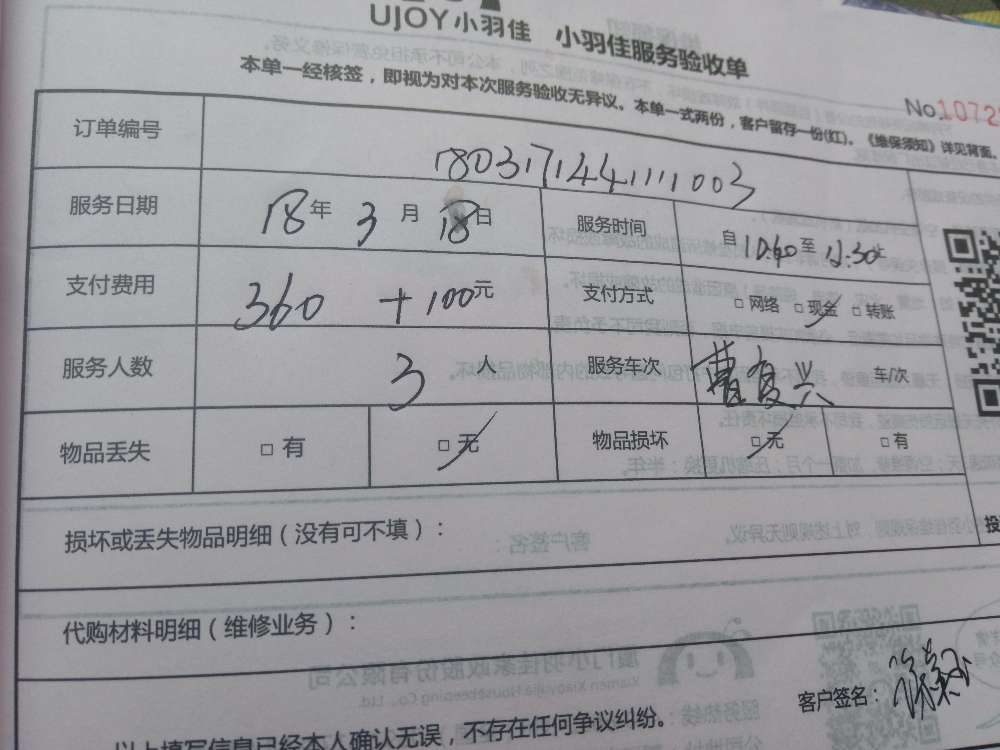 UJOY小羽佳 小羽佳服务验收单
本单一经核签，即视为对本次服务验收无异议。本单一式两份，客户留存一份(红)。《维保须知》详见背面。
No.1072
订单编号 180317144111003
服务日期 18年 3月 18日 服务时间 自 至 12:30
支付费用 360 +100元 支付方式 □网络 □现金 □转账
服务人数 3人 服务车次 曹复兴 车/次
物品丢失 □有 □无 物品损坏 □无 □有
损坏或丢失物品明细（没有可不填）：
投
代购材料明细（维修业务）：
客户签名：
以上填写信息已经本人确认无误，不存在任何争议纠纷。